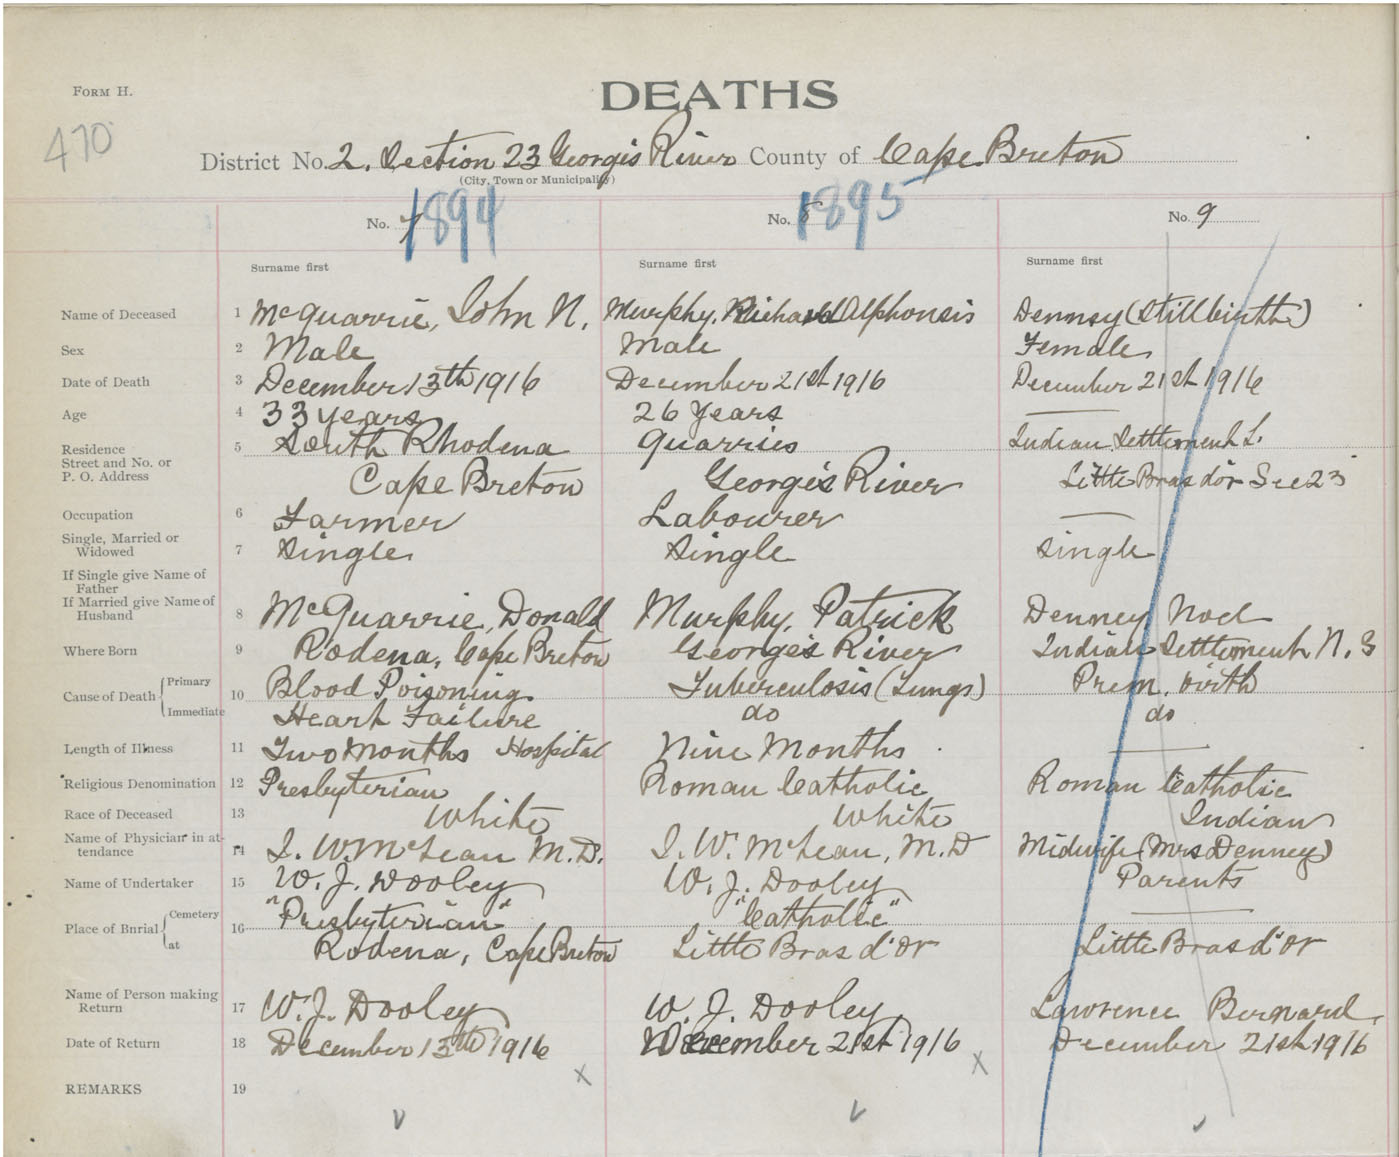 FORM H.
DEATHS
470
District No. 2. Section 23 Georges River County of Cape Breton
(City, Town or Municipality)
No. 7 1894 No. 8 1895 No. 9
Surname first Surname first Surname first
Name of Deceased 1 McQuarrie, John N. Murphy, Richard Alphonsis Denney (Stillbirth)
Sex 2 Male Male Female
Date of Death 3 December 13th 1916 December 21st 1916 December 21st 1916
Age 4 33 years 26 Years
Residence 5 South Rhodena Quarries Indian Settlement L.
Street and No. or
P. O. Address Cape Breton George's River Little Bras d'or Sec 23
Occupation 6 Farmer Labourer
Single, Married or
Widowed 7 Single Single Single
If Single give Name of
Father
If Married give Name of
Husband 8 McQuarrie, Donald Murphy, Patrick Denney Noel
Where Born 9 Rodena, Cape Breton George's River Indian Settlement N. S
Cause of Death Primary 10 Blood Poisoning Tuberculosis (Lungs) Prem. birth
Immediate Heart Failure do do
Length of Illness 11 Two Months Hospital Nine Months
Religious Denomination 12 Presbyterian Roman Catholic Roman Catholic
Race of Deceased 13 White White Indian
Name of Physician in at-
tendance 14 J. W. McLean M.D. J. W. McLean, M.D Midwife (Mrs Denney)
Name of Undertaker 15 W. J. Dooley W. J. Dooley Parents
Place of Burial Cemetery 16 "Presbyterian" "Catholic"
at Rodena, Cape Breton Little Bras d'Or Little Bras d'Or
Name of Person making
Return 17 W. J. Dooley W. J. Dooley Lawrence Bernard
Date of Return 18 December 13th 1916 December 21st 1916 December 21st 1916
x x
REMARKS 19